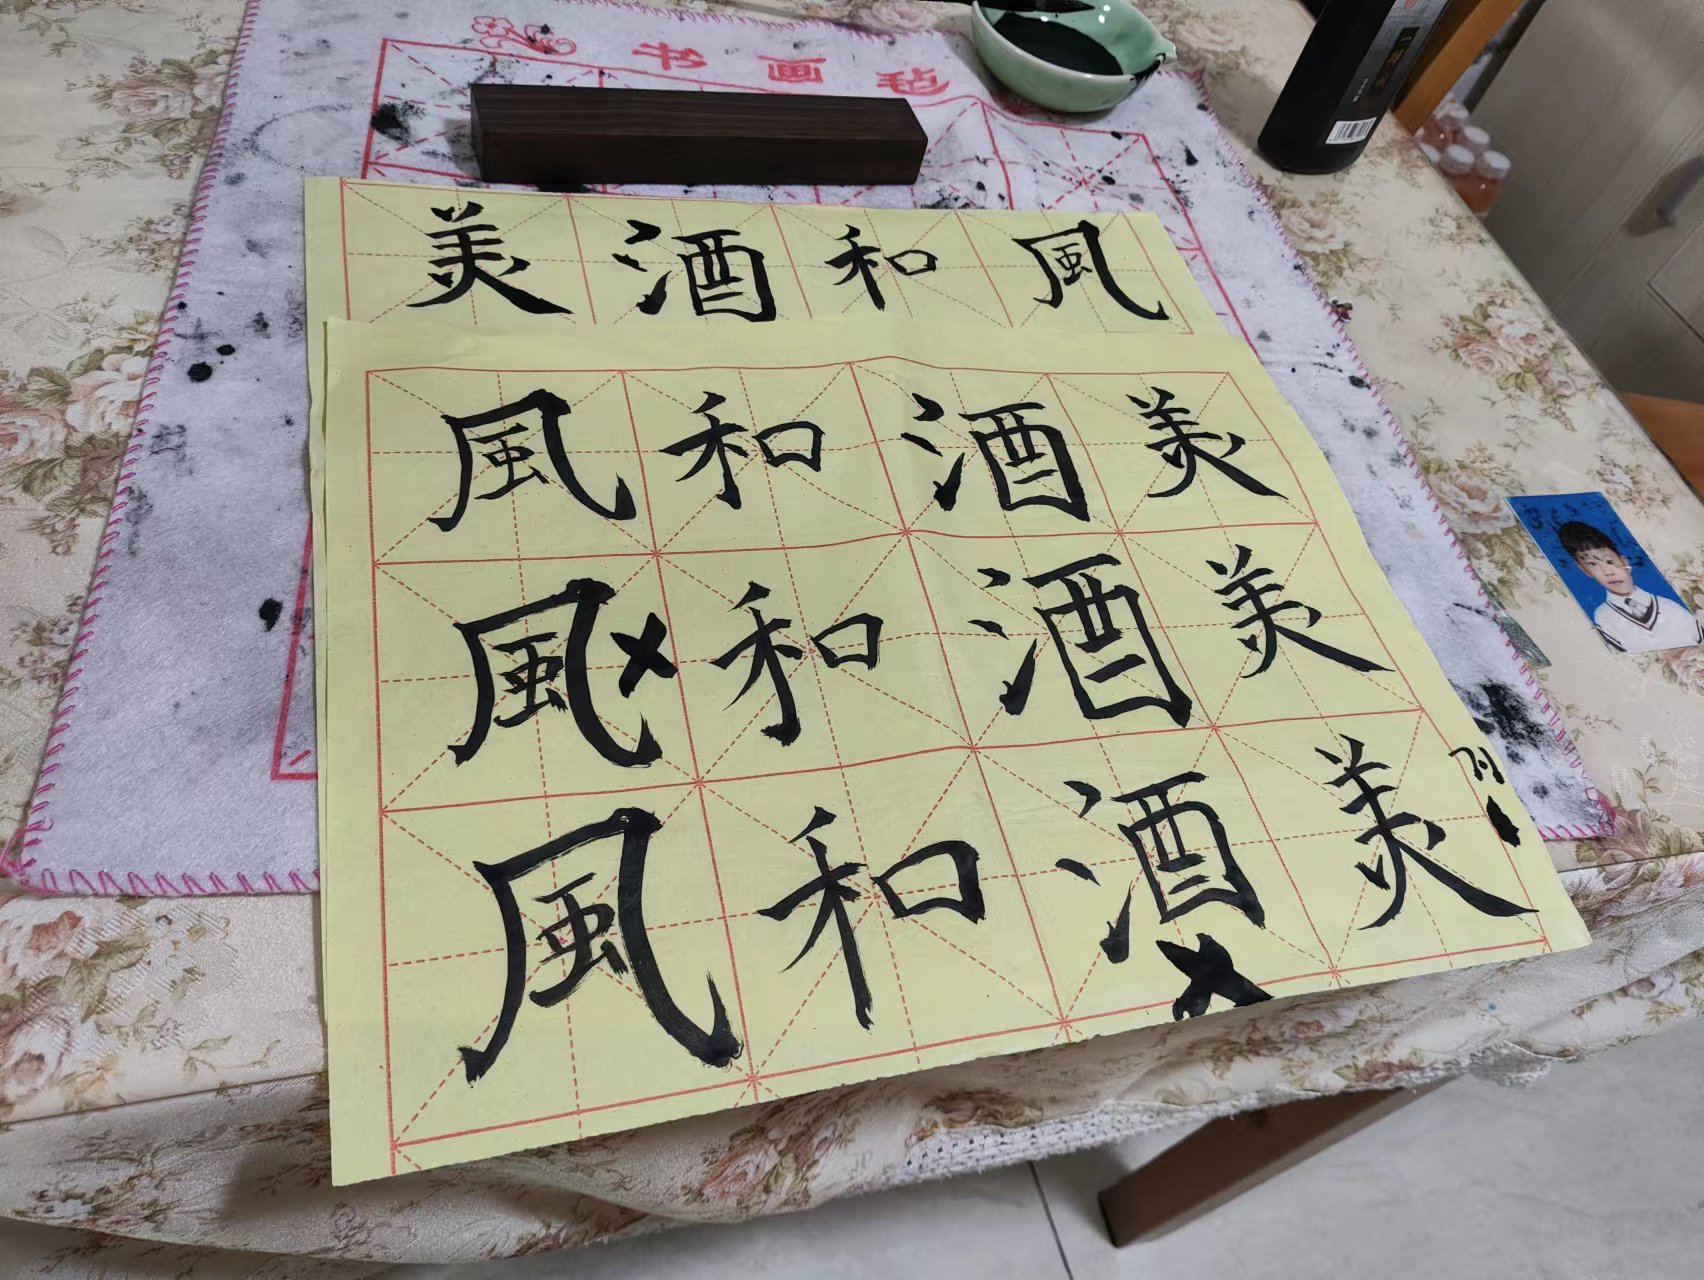 书画毡
美酒和風
風和酒美
風和酒美
風和酒美